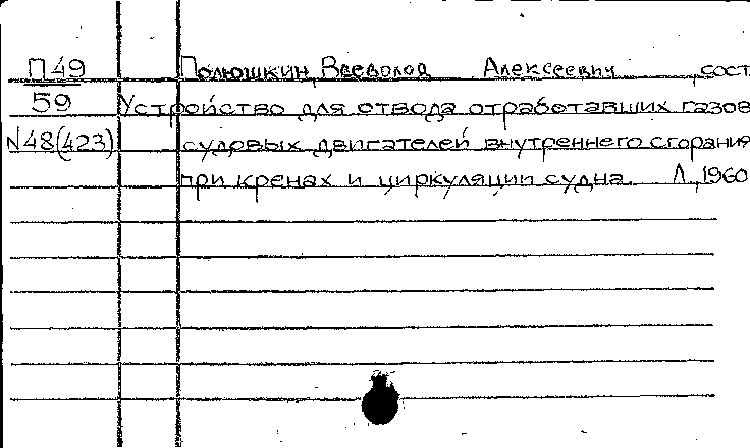 П49 Полюшкин Всеволод Алексеевич сост
59 Устройство для отвода отработавших газов
N48(423) судовых двигателей внутреннего сгорания
при кренах и циркуляции судна Л., 1960